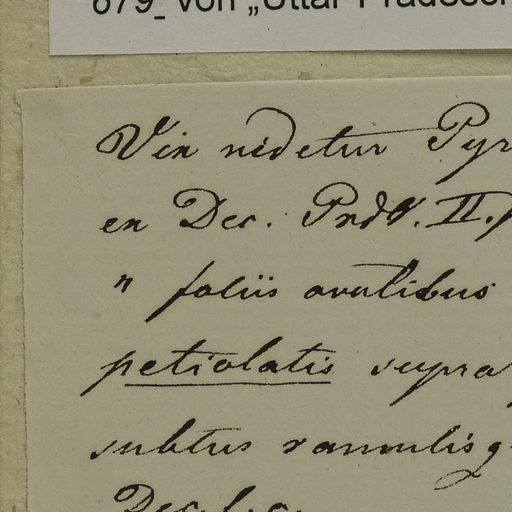 679_ von „Uttar Pradesch
Vix videtur Pyr
ex Dec. Prdr. II. p
" foliis ovatibus
petiolatis supra
subtus ramulisq
Dec. l. c.